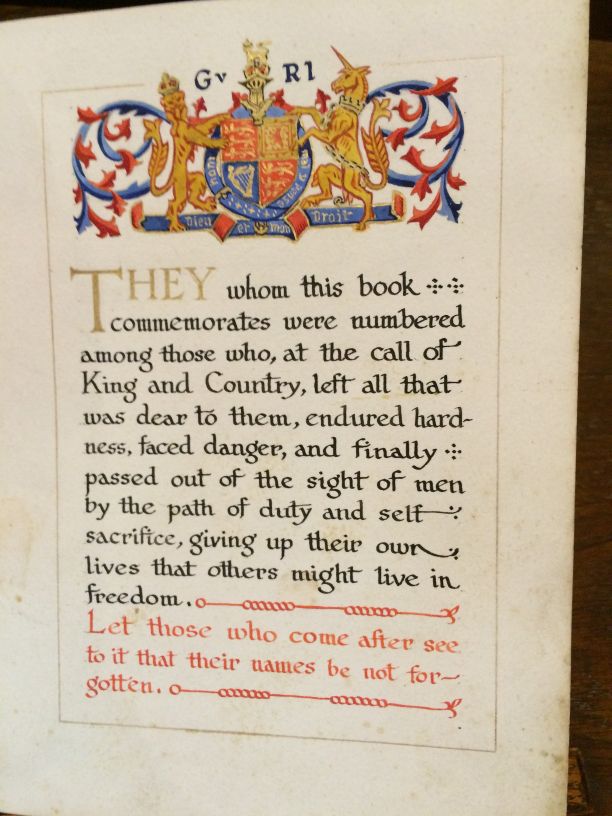 Gv RI
Dieu et mon Droit
THEY whom this book
commemorates were numbered
among those who, at the call of
King and Country, left all that
was dear to them, endured hard-
ness, faced danger, and finally
passed out of the sight of men
by the path of duty and self
sacrifice, giving up their own
lives that others might live in
freedom.
Let those who come after see
to it that their names be not for-
gotten.